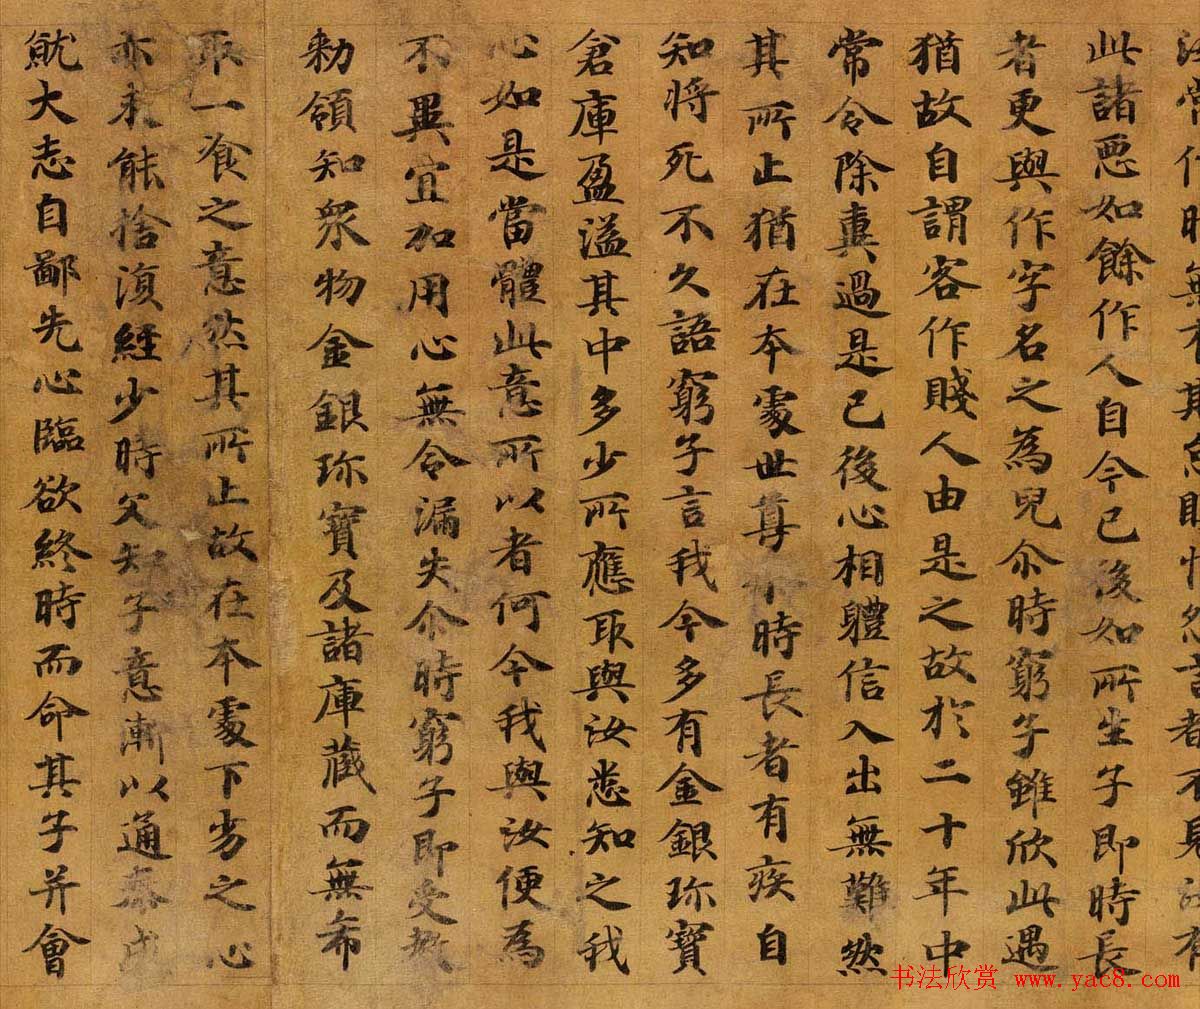 此諸惡如餘作人自今已後如所生子即時長
者更與作字名之為兒尒時窮子雖欣此遇
猶故自謂客作賤人由是之故於二十年中
常令除糞過是已後心相軆信入出無難然
其所止猶在本處世尊尒時長者有疾自
知將死不久語窮子言我今多有金銀珎寶
倉庫盈溢其中多少所應取與汝悉知之我
心如是當體此意所以者何今我與汝便為
不異宜加用心無令漏失尒時窮子即受教
勑領知眾物金銀珎寶及諸庫藏而無希
取一飡之意然其所止故在本處下劣之心
亦未能捨復經少時父知子意漸以通泰成
就大志自鄙先心臨欲終時而命其子并會
书法欣赏 www.yac8.com